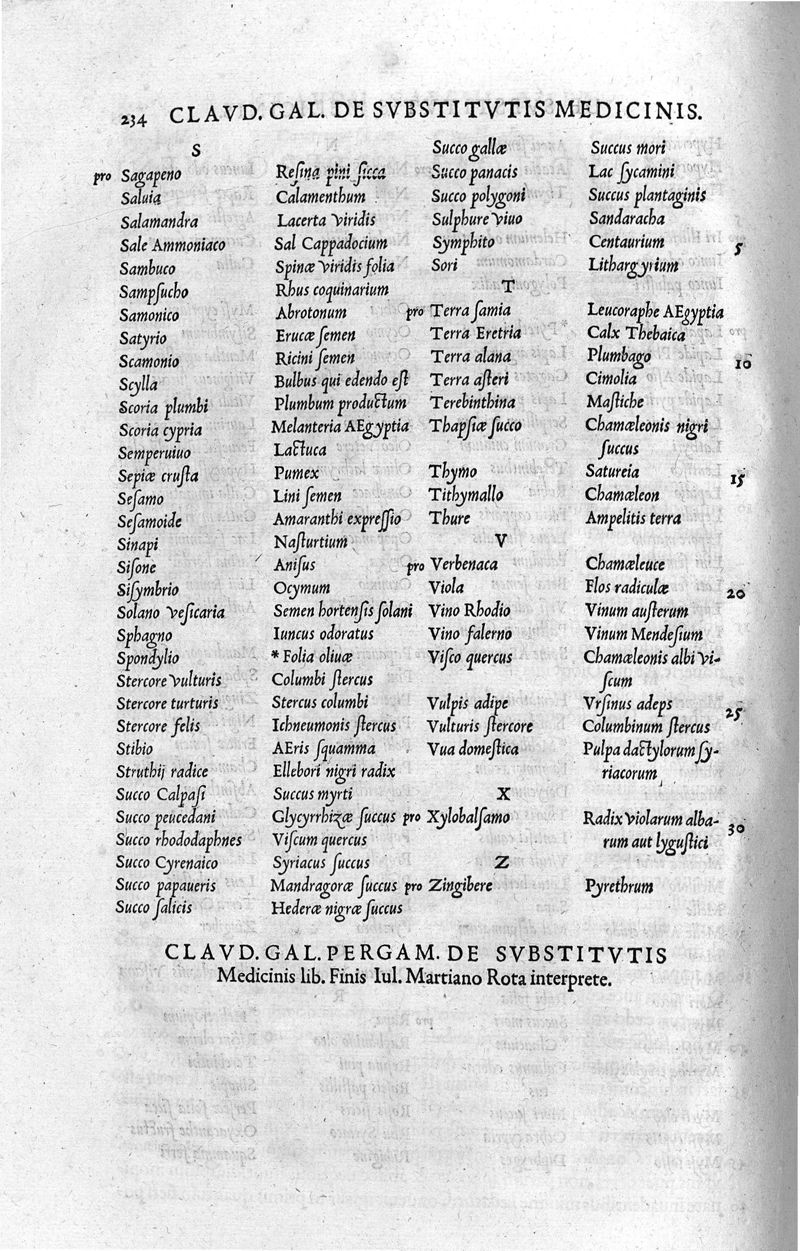 234 CLAVD. GAL. DE SVBSTITVTIS MEDICINIS.
S
pro Sagapeno Resina pini sicca
Saluia Calamenthum
Salamandra Lacerta viridis
Sale Ammoniaco Sal Cappadocium
Sambuco Spinæ viridis folia
Sampsucho Rhus coquinarium
Samonico Abrotonum
Satyrio Erucæ semen
Scamonio Ricini semen
Scylla Bulbus qui edendo est
Scoria plumbi Plumbum productum
Scoria cypria Melanteria AEgyptia
Semperuiuo Lactuca
Sepiæ crusta Pumex
Sesamo Lini semen
Sesamoide Amaranthi expressio
Sinapi Nasturtium
Sisone Anisus
Sisymbrio Ocymum
Solano vesicaria Semen hortensis solani
Sphagno Iuncus odoratus
Spondylio * Folia oliuæ
Stercore vulturis Columbi stercus
Stercore turturis Stercus columbi
Stercore felis Ichneumonis stercus
Stibio AEris squamma
Struthij radice Ellebori nigri radix
Succo Calpasi Succus myrti
Succo peucedani Glycyrrhizæ succus
Succo rhododaphnes Viscum quercus
Succo Cyrenaico Syriacus succus
Succo papaueris Mandragoræ succus
Succo salicis Hederæ nigræ succus
Succo gallæ Succus mori
Succo panacis Lac sycamini
Succo polygoni Succus plantaginis
Sulphure viuo Sandaracha
Symphito Centaurium 5
Sori Lithargyrium
T
pro Terra samia Leucoraphe AEgyptia
Terra Eretria Calx Thebaica
Terra alana Plumbago 10
Terra asteri Cimolia
Terebinthina Mastiche
Thapsiæ succo Chamæleonis nigri
succus
Thymo Satureia 15
Tithymallo Chamæleon
Thure Ampelitis terra
V
pro Verbenaca Chamæleuce
Viola Flos radiculæ 20
Vino Rhodio Vinum austerum
Vino falerno Vinum Mendesium
Visco quercus Chamæleonis albi vi-
scum
Vulpis adipe Vrsinus adeps 25
Vulturis stercore Columbinum stercus
Vua domestica Pulpa dactylorum sy-
riacorum
X
pro Xylobalsamo Radix violarum alba- 30
rum aut lygustici
Z
pro Zingibere Pyrethrum
CLAVD. GAL. PERGAM. DE SVBSTITVTIS
Medicinis lib. Finis Iul. Martiano Rota interprete.